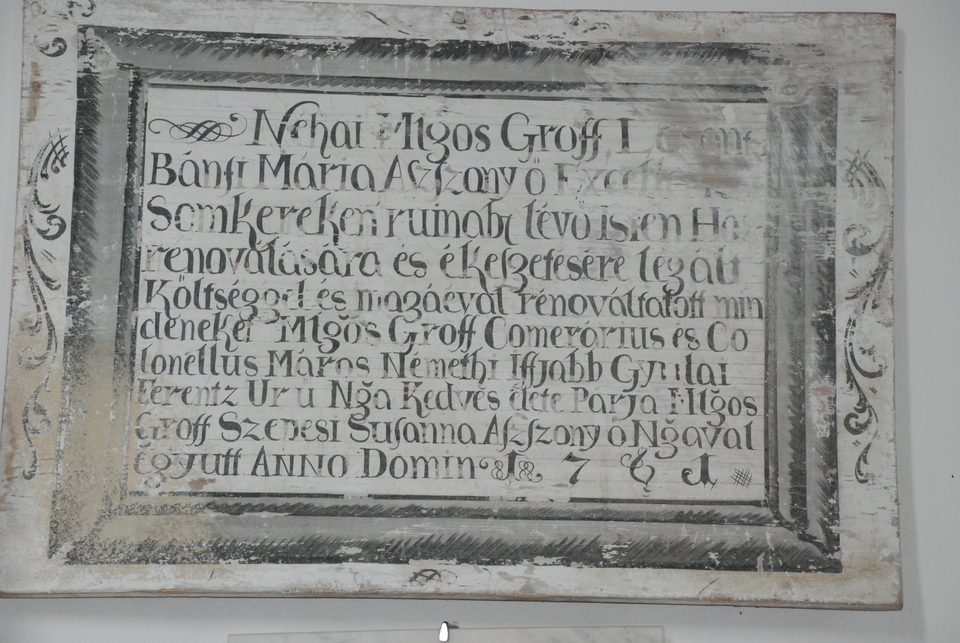 Nehai Mlgos Groff
Bánfi Mária Aſzſzony ő
Somkereken ruinabɀ lévő Isten
rénoválására és ékesgetesére legált
Költséggel és magáéval rénováltatott min
deneket Mlgos Groff Comerárius és Co
lonellus Máros Némethi Iffjabb Gyulai
Ferentz Ur ű Nğa Kedves élete Párja Mlğos
Groff Szepesi Susanna Aſzſzony ő Nğával
együtt ANNO Domini 1 7 6 1